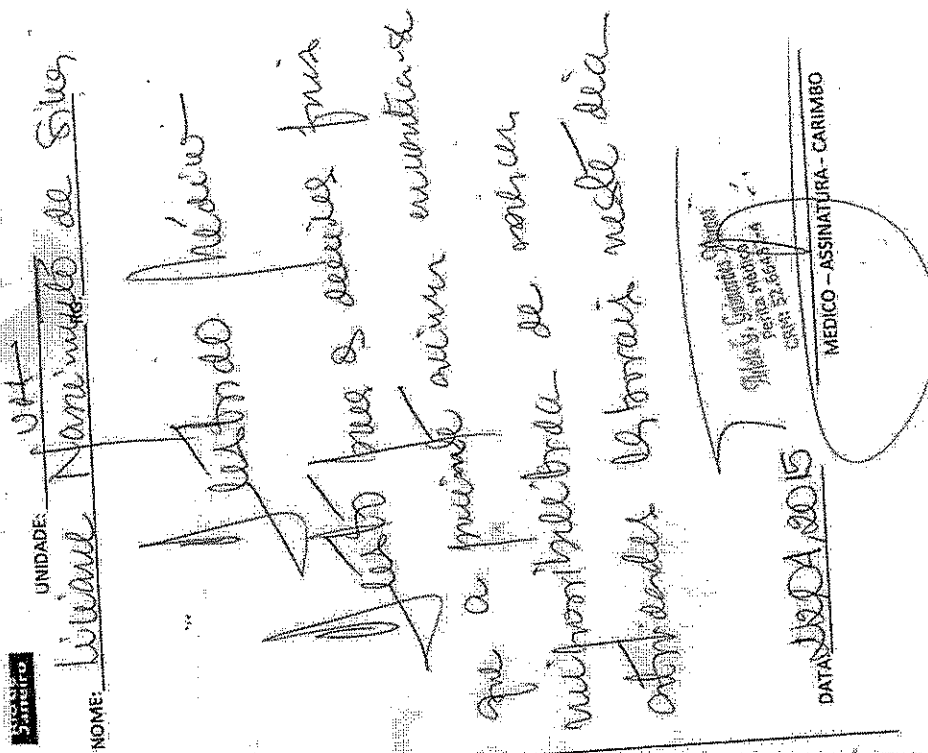 Janeiro
UNIDADE: UH
NOME: Liviane Nascimento da Silva
RG:
Atestado Médico
Atesto para os devidos fins
que a paciente acima encontra-se
impossibilitada de exercer
atividades laborais neste dia
Perita Médica
CRM 52.
DATA 2015
MEDICO – ASSINATURA – CARIMBO